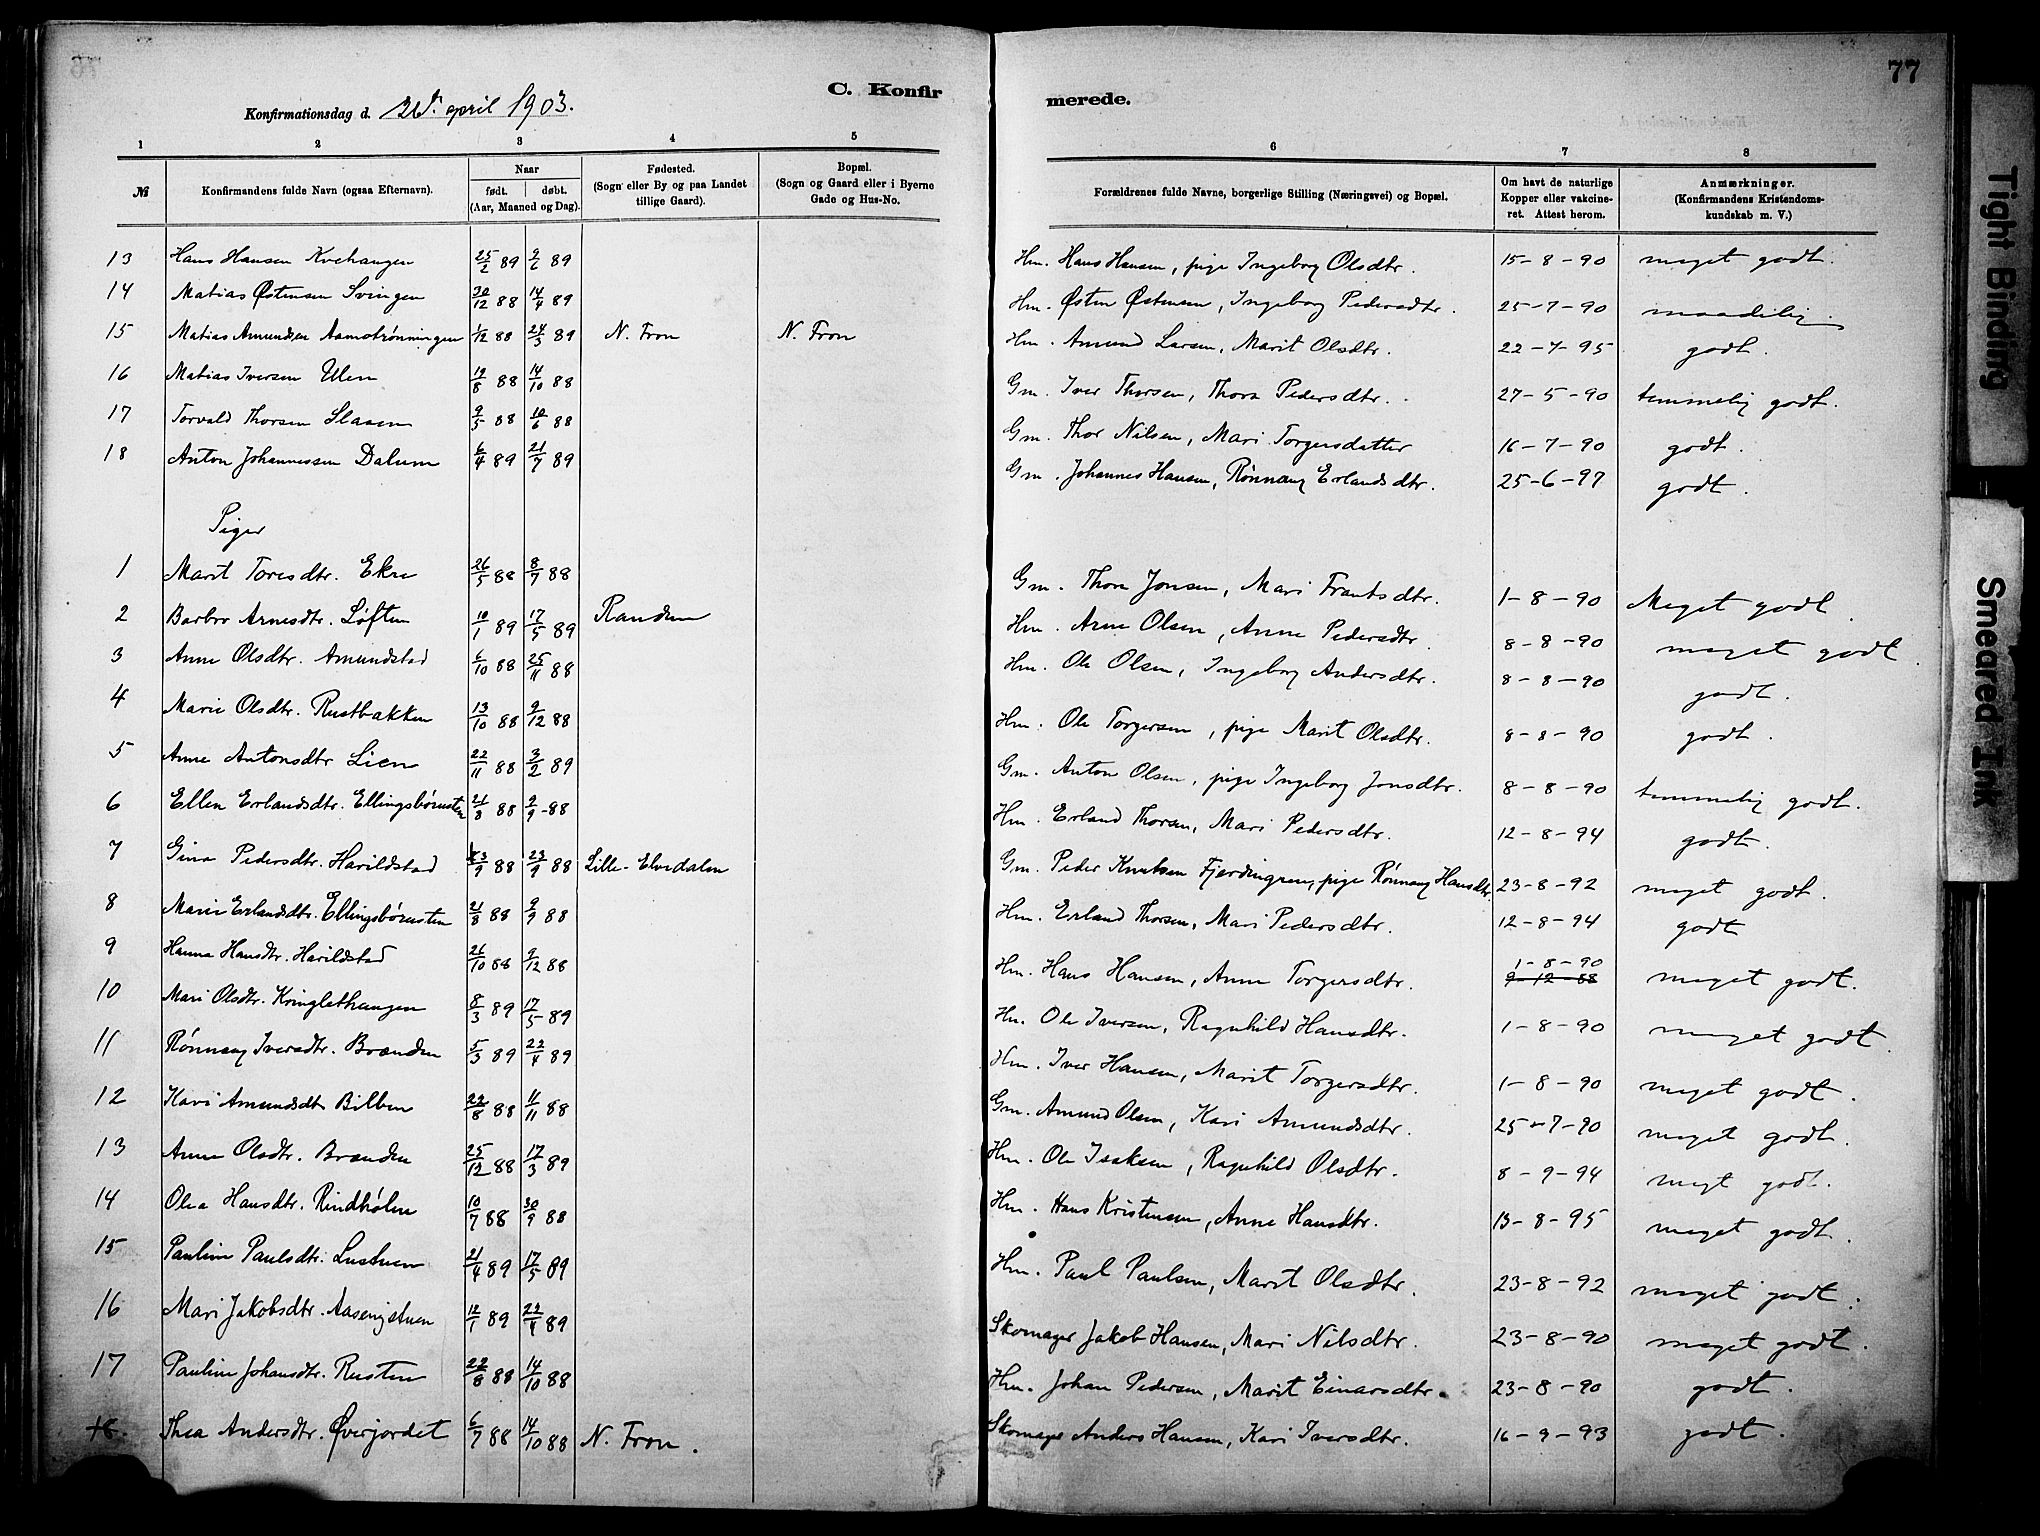 77
C. Konfir
merede.
Konfirmationsdag d. 26de april 1903.
1 2 3 4 5 6 7 8
№ Konfirmandens fulde Navn (ogsaa Efternavn). Naar født. døbt. (Aar, Maaned og Dag). Fødested. (Sogn eller By og paa Landet tillige Gaard). Bopæl. (Sogn og Gaard eller i Byerne Gade og Hus-No. Forældrenes fulde Navne, borgerlige Stilling (Næringsvei) og Bopæl. Om havt de naturlige Kopper eller vakcineret. Attest herom. Anmærkninger. (Konfirmandens Kristendomskundskab m. V.)
13 Hans Hansen Kvehaugen 25/2 89 9/6 89 Hm. Hans Hansen, pige Ingeborg Olsdtr. 15-8-90 meget godt.
14 Matias Østensen Svingen 30/12 88 14/4 89 Hm. Østen Østensen, Ingeborg Pedersdtr. 25-7-90 maadelig.
15 Matias Amundsen Aamotrønningen 1/12 88 24/3 89 N. Fron N. Fron Hm. Amund Larsen, Marit Olsdtr. 22-7-95 godt.
16 Matias Iversen Ulen 19/8 88 14/10 88 Gm. Iver Thorsen, Thora Pedersdtr. 27-5-90 temmelig godt.
17 Torvald Thorsen Slaaen 9/5 88 10/6 88 Gm. Thor Nilsen, Mari Torgersdatter 16-7-90 godt.
18 Anton Johannessen Dalum 6/4 89 21/7 89 Gm. Johannes Hansen, Rønnaug Erlandsdtr. 25-6-97 godt.
Piger
1 Marit Toresdtr. Ekre 26/5 88 8/7 88 Gm. Thore Jonsen, Mari Frantsdtr. 1-8-90 Meget godt
2 Barbro Arnesdtr. Løften 10/1 89 17/5 89 Randen Hm. Arne Olsen, Anne Pedersdtr 8-8-90 meget godt.
3 Anne Olsdtr. Amundstad 6/10 88 25/11 88 Hm. Ole Olsen, Ingeborg Andersdtr. 8-8-90 godt.
4 Marie Olsdtr. Rustbakken 13/10 88 9/12 88 Hm. Ole Torgersen, pige Marit Olsdtr. 8-8-90 godt.
5 Anne Antonsdtr Lien 22/11 88 3/2 89 Gm. Anton Olsen, pige Ingeborg Jonsdtr. 8-8-90 temmelig godt.
6 Ellen Erlandsdtr. Ellingsbørusten 21/8 88 9/9-88 Hm. Erland Thorsen, Mari Pedersdtr. 12-8-94 godt.
7 Gina Pedersdtr. Harildstad 3/9 88 23/9 88 Lille-Elvedalen Gm. Peder Knutsen Fjerdingren, pige Rønnaug Hansdtr. 23-8-92 meget godt.
8 Marie Erlandsdtr. Ellingsbørusten 21/8 88 9/9 88 Hm. Erland Thorsen, Mari Pedersdtr. 12-8-94 godt
9 Hanna Hansdtr. Harildstad 26/10 88 9/12 88 Hm. Hans Hansen, Anne Torgersdtr. 1-8-90 9-12-88 meget godt.
10 Mari Olsdtr. Kringlethaugen 8/3 89 17/5 89 Hm. Ole Iversen, Ragnhild Hansdtr. 1-8-90 meget godt.
11 Rønnaug Iversdtr. Brænden 5/3 89 22/4 89 Hm. Iver Hansen, Marit Torgersdtr. 1-8-90 meget godt.
12 Kari Amundsdtr Bilben 22/8 88 11/11 88 Gm. Amund Olsen, Kari Amundsdtr. 25-7-90 meget godt.
13 Anne Olsdtr. Brænden 25/12 88 17/3 89 Hm. Ole Isaksen, Ragnhild Olsdtr. 8-9-94 megt godt.
14 Olea Hansdtr. Rindhølen 10/7 88 30/9 88 Hm. Hans Kristensen, Anne Hansdtr. 13-8-95 meget godt.
15 Pauline Paulsdtr. Lustuen 21/4 89 17/5 89 Hm. Paul Paulsen, Marit Olsdtr. 23-8-92 meget godt.
16 Mari Jakobsdtr. Aasengstuen 12/1 89 22/4 89 Skomager Jakob Hansen, Mari Nilsdtr. 23-8-90 meget godt.
17 Pauline Johansdtr. Rusten 22/8 88 14/10 88 Hm. Johan Pedersen, Marit Einarsdtr. 23-8-90 godt.
18. Thea Andersdtr. Øverjordet 6/7 88 14/10 88 N. Fron. Skomager Anders Hansen, Kari Iversdtr. 16-9-93 godt.
Tight Binding
Smeared Ink